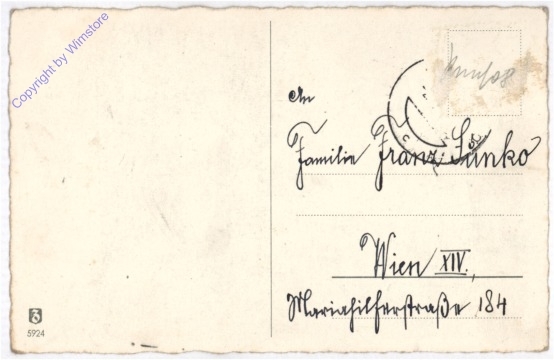 Copyright by Wimstore
An
Familie Franz Sunko
Wien XIV.,
Mariahilferstraße 184
5924